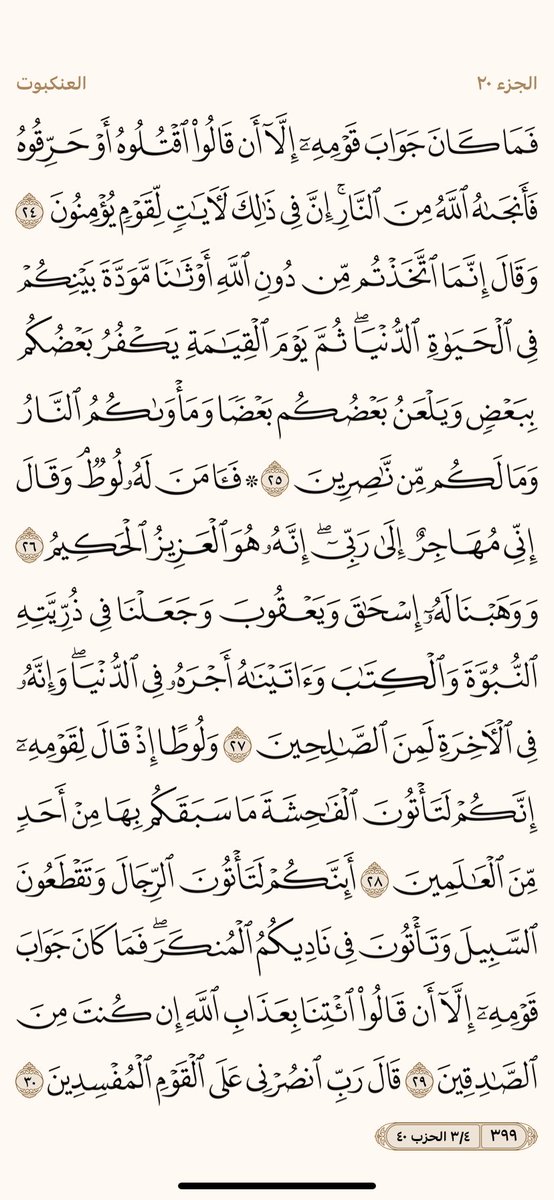 الجزء ٢٠
العنكبوت
فَمَا كَانَ جَوَابَ قَوْمِهِۦٓ إِلَّآ أَن قَالُوا۟ ٱقْتُلُوهُ أَوْ حَرِّقُوهُ
فَأَنجَىٰهُ ٱللَّهُ مِنَ ٱلنَّارِ ۚ إِنَّ فِى ذَٰلِكَ لَـَٔايَـٰتٍ لِّقَوْمٍ يُؤْمِنُونَ ٢٤
وَقَالَ إِنَّمَا ٱتَّخَذْتُم مِّن دُونِ ٱللَّهِ أَوْثَـٰنًا مَّوَدَّةَ بَيْنِكُمْ
فِى ٱلْحَيَوٰةِ ٱلدُّنْيَا ۖ ثُمَّ يَوْمَ ٱلْقِيَـٰمَةِ يَكْفُرُ بَعْضُكُم
بِبَعْضٍ وَيَلْعَنُ بَعْضُكُم بَعْضًا وَمَأْوَىٰكُمُ ٱلنَّارُ
وَمَا لَكُم مِّن نَّـٰصِرِينَ ٢٥ ۞ فَـَٔامَنَ لَهُۥ لُوطٌ ۘ وَقَالَ
إِنِّى مُهَاجِرٌ إِلَىٰ رَبِّىٓ ۖ إِنَّهُۥ هُوَ ٱلْعَزِيزُ ٱلْحَكِيمُ ٢٦
وَوَهَبْنَا لَهُۥٓ إِسْحَـٰقَ وَيَعْقُوبَ وَجَعَلْنَا فِى ذُرِّيَّتِهِ
ٱلنُّبُوَّةَ وَٱلْكِتَـٰبَ وَءَاتَيْنَـٰهُ أَجْرَهُۥ فِى ٱلدُّنْيَا ۖ وَإِنَّهُۥ
فِى ٱلْـَٔاخِرَةِ لَمِنَ ٱلصَّـٰلِحِينَ ٢٧ وَلُوطًا إِذْ قَالَ لِقَوْمِهِۦٓ
إِنَّكُمْ لَتَأْتُونَ ٱلْفَـٰحِشَةَ مَا سَبَقَكُم بِهَا مِنْ أَحَدٍ
مِّنَ ٱلْعَـٰلَمِينَ ٢٨ أَئِنَّكُمْ لَتَأْتُونَ ٱلرِّجَالَ وَتَقْطَعُونَ
ٱلسَّبِيلَ وَتَأْتُونَ فِى نَادِيكُمُ ٱلْمُنكَرَ ۖ فَمَا كَانَ جَوَابَ
قَوْمِهِۦٓ إِلَّآ أَن قَالُوا۟ ٱئْتِنَا بِعَذَابِ ٱللَّهِ إِن كُنتَ مِنَ
ٱلصَّـٰدِقِينَ ٢٩ قَالَ رَبِّ ٱنصُرْنِى عَلَى ٱلْقَوْمِ ٱلْمُفْسِدِينَ ٣٠
٣٩٩
٣/٤ الحزب ٤٠